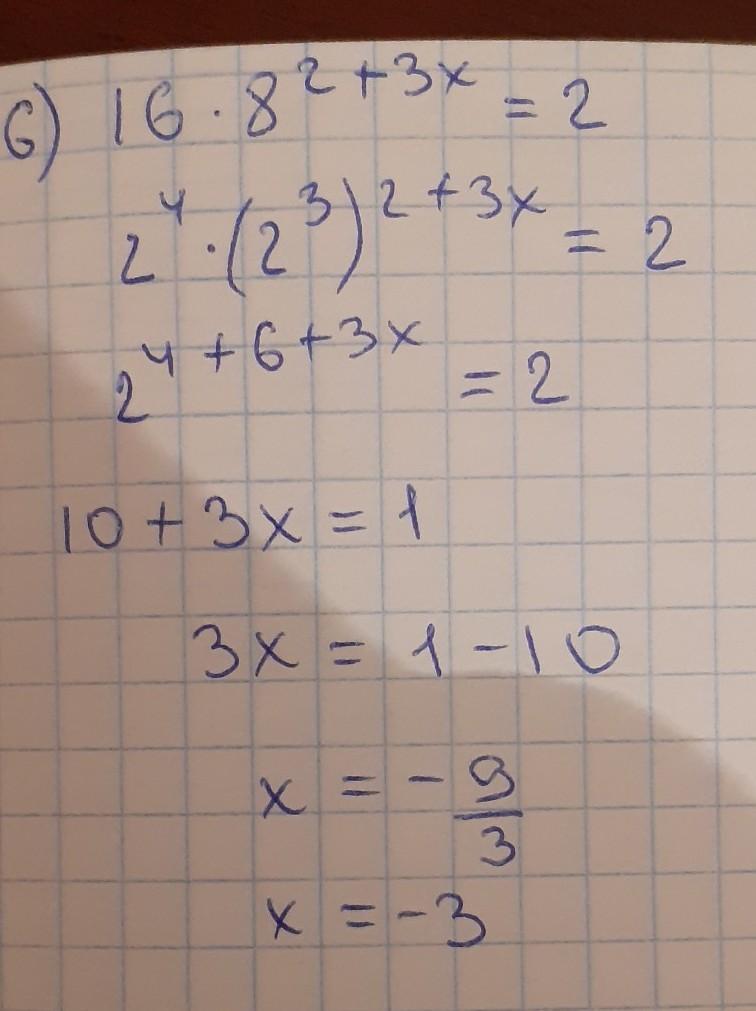 6) 16 · 8^{2+3x} = 2
2^4 · (2^3)^{2+3x} = 2
2^{4+6+3x} = 2
10 + 3x = 1
3x = 1 - 10
x = - 9/3
x = -3